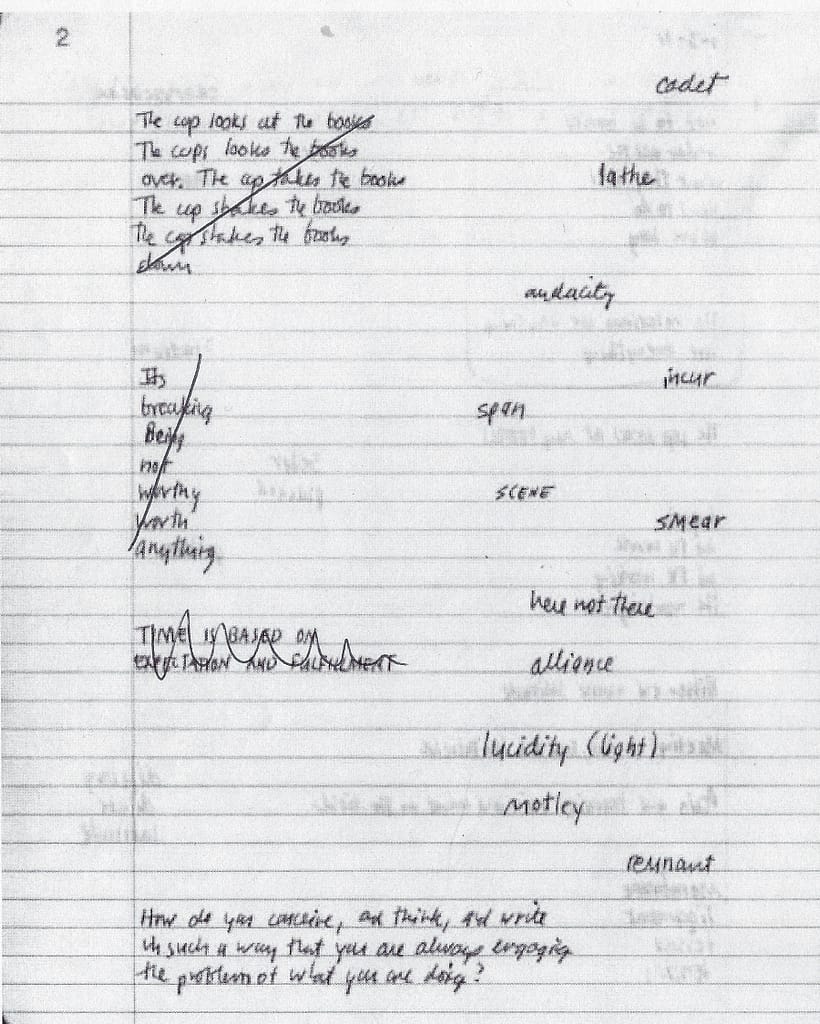 2
cadet
The cup looks at the books
The cups looks the books
over. The cup takes the books
lathe
The cup shakes the books
The cup shakes the books
down
audacity
Its
incur
breaking
span
Being
not
worthy
SCENE
worth
smear
anything
here not there
TIME IS BASED ON
EXPECTATION AND FULFILLMENT
alliance
lucidity (light)
motley
remnant
How do you conceive, and think, and write
in such a way that you are always engaging
the problem of what you are doing?